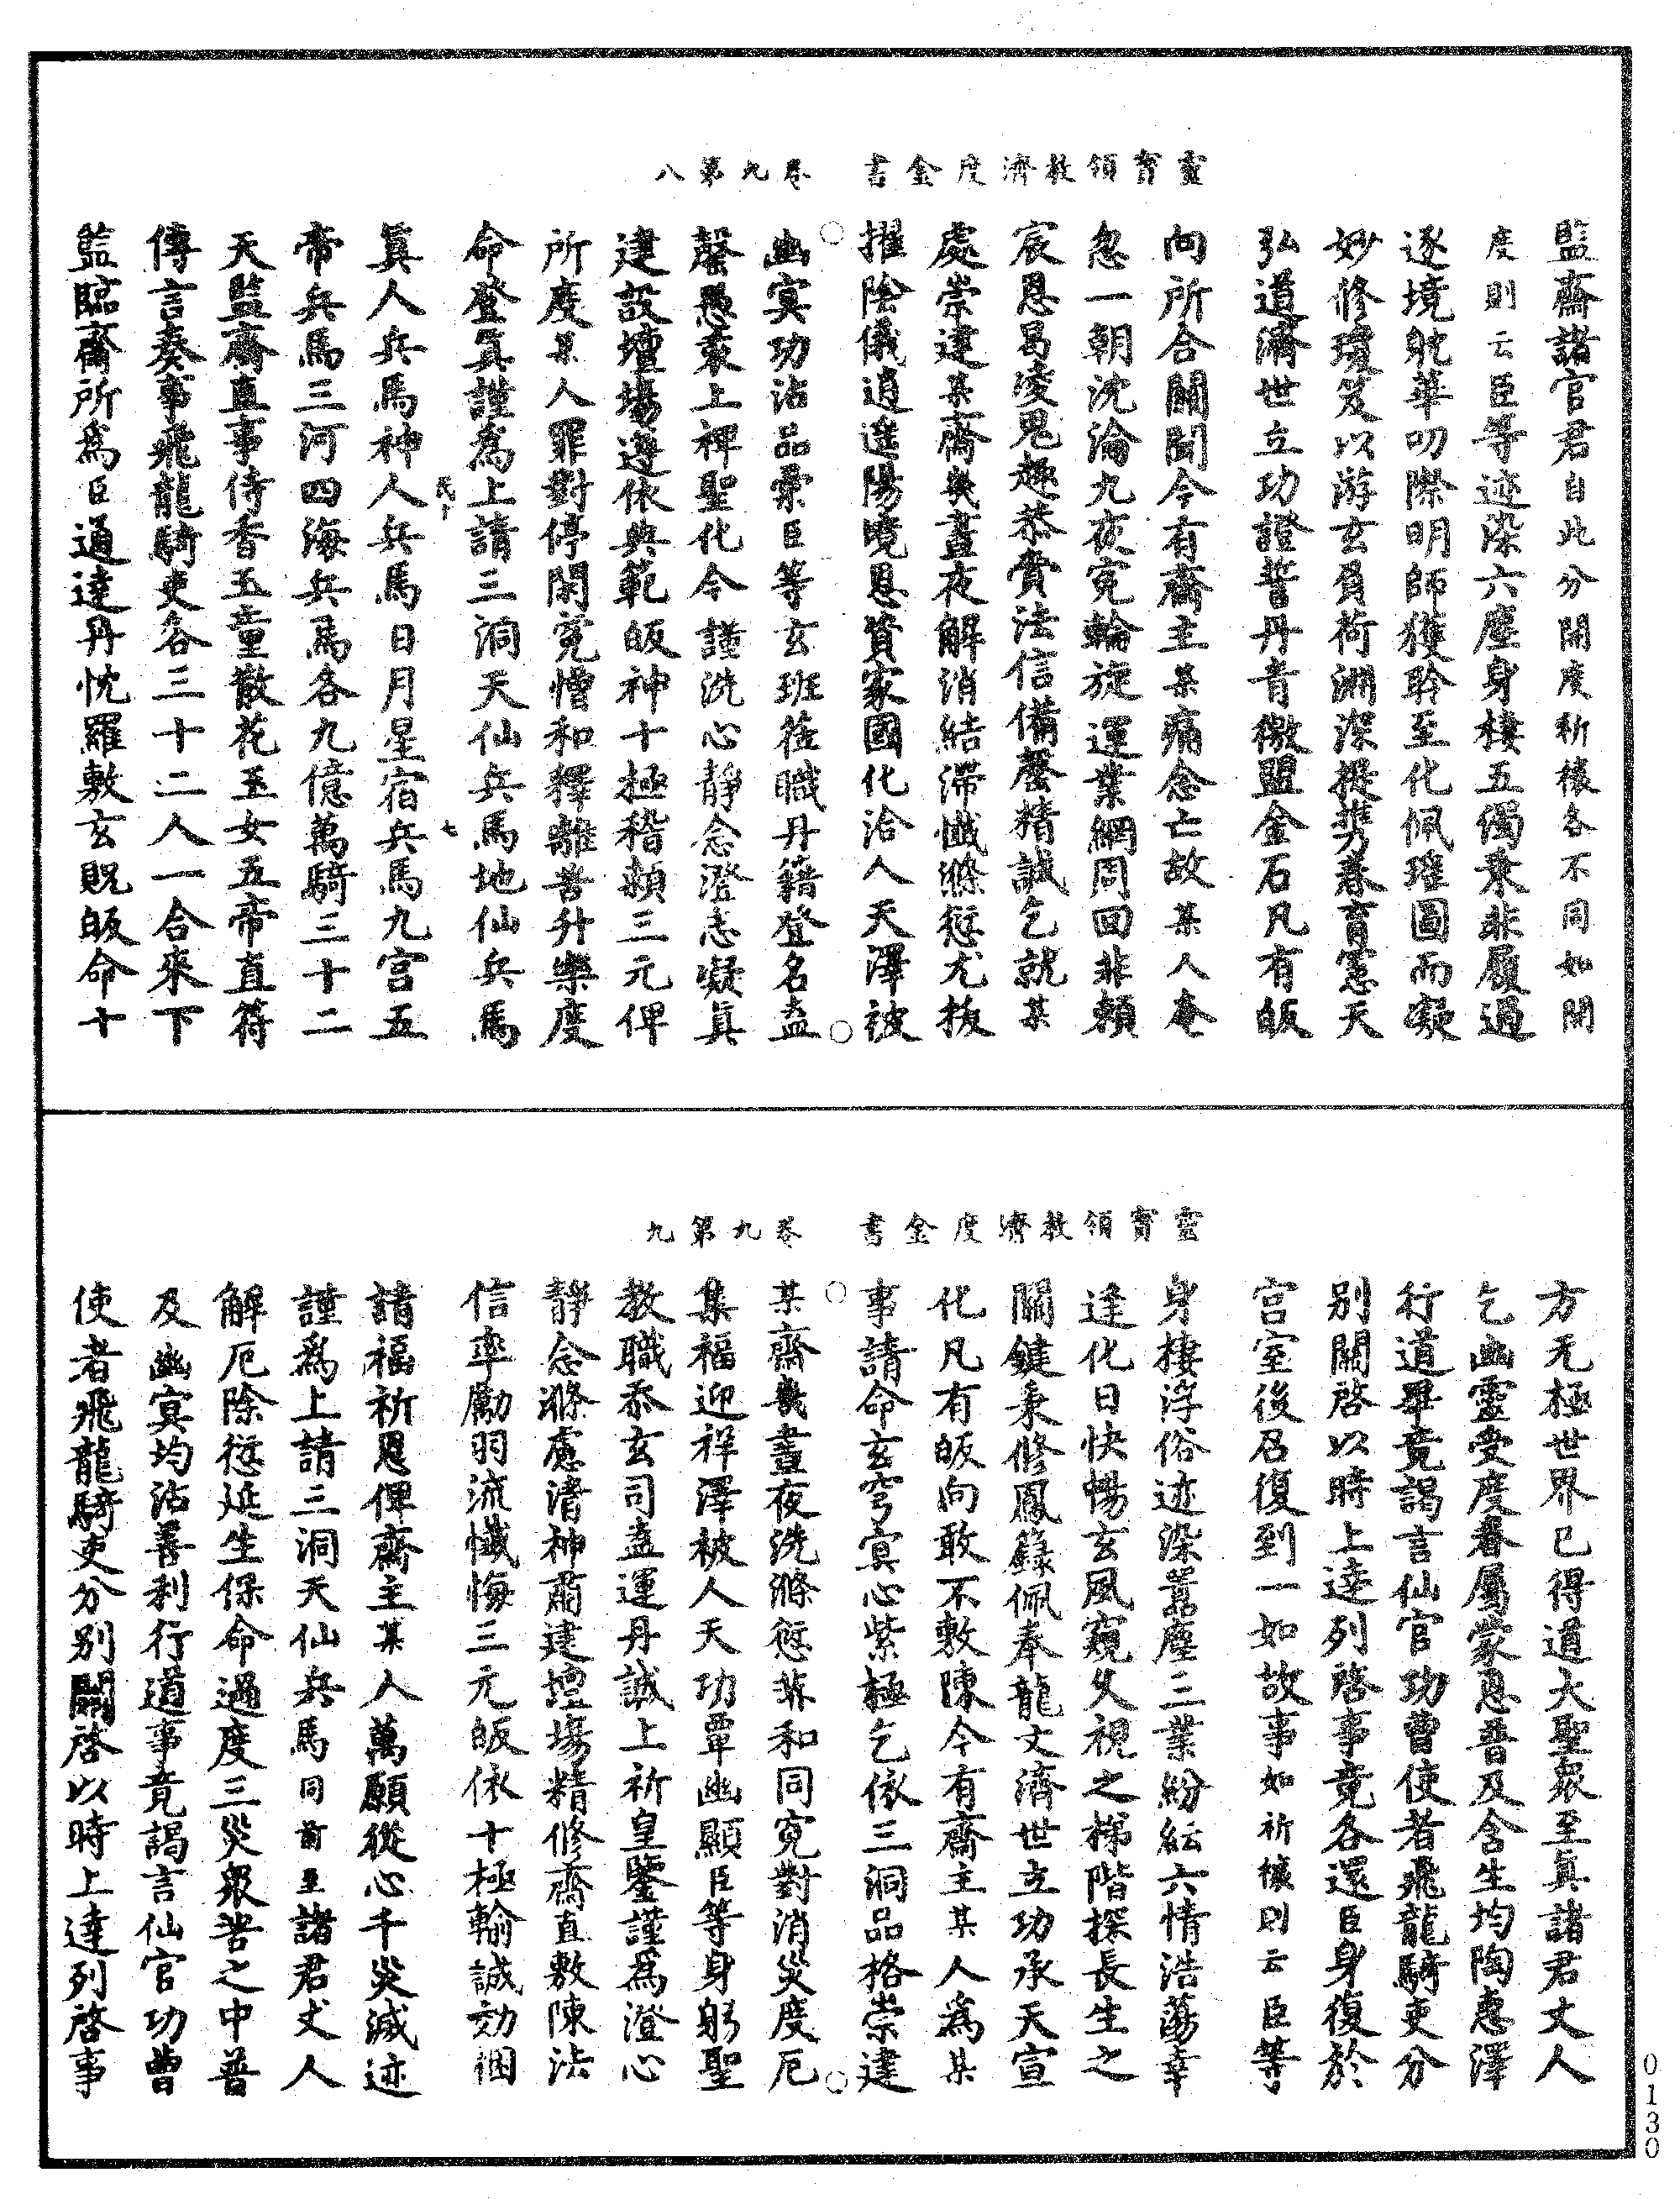 靈寶領教濟度金書　卷九第八
監齋諸官君自此分開度祈禳各不同如開
度則云臣等迹染六塵身棲五濁乘非履過
逐境躭華叨際明師獲聆至化佩瑤圖而凝
妙修瓊笈以游玄負荷淵深提携養育憲天
弘道濟世立功證誓丹青徼盟金石凡有皈
向所合關聞今有齋主某痛念亡故某人奄
忽一朝沈淪九夜冤輪旋運業網周回非賴
宸恩曷淩鬼趣恭賫法信備罄精誠乞就某
處崇建某齋幾晝夜解消結滯懺滌愆尤拔
擢陰儀逍遙陽境恩資家國化洽人天澤被
幽冥功沾品彙臣等玄班莅職丹籍登名盍
罄愚衷上禆聖化今謹洗心靜念澄志凝眞
建設壇場遵依典範皈神十極稽顙三元俾
所度某人罪對停閑冤憎和釋離苦升樂度
命登眞謹爲上請三洞天仙兵馬地仙兵馬
眞人兵馬神人兵馬日月星宿兵馬九宫五
帝兵馬三河四海兵馬各九億萬騎三十二
天監齋直事侍香玉童散花玉女五帝直符
傳言奏事飛龍騎吏各三十二人一合來下
監臨齋所爲臣通達丹忱羅敷玄貺皈命十
靈寶領教濟度金書　卷九第九
方无極世界已得道大聖衆至眞諸君丈人
乞幽靈受度眷屬蒙恩普及含生均陶惠澤
行道畢竟謁言仙官功曹使者飛龍騎吏分
别關啓以時上達列啓事竟各還臣身復於
宫室後召復到一如故事如祈禳則云臣等
身棲浮俗迹染囂塵三業紛紜六情浩蕩幸
逢化日快暢玄風窺久視之梯階探長生之
關鍵秉修鳳籙佩奉龍文濟世立功承天宣
化凡有皈向敢不敷陳今有齋主某人爲某
事請命玄穹冥心紫極乞依三洞品格崇建
某齋幾晝夜洗滌愆非和同冤對消災度厄
集福迎祥澤被人天功覃幽顯臣等身躬聖
教職忝玄司盍運丹誠上祈皇鑒謹爲澄心
靜念滌慮潜神肅建壇場精修齋直敷陳法
信率勵羽流懺悔三元皈依十極輸誠効悃
請福祈恩俾齋主某人萬願從心千災滅迹
謹爲上請三洞天仙兵馬同前至諸君丈人
解厄除愆延生保命過度三災衆苦之中普
及幽冥均沾善利行道事竟謁言仙官功曹
使者飛龍騎吏分别關啓以時上達列啓事
0130